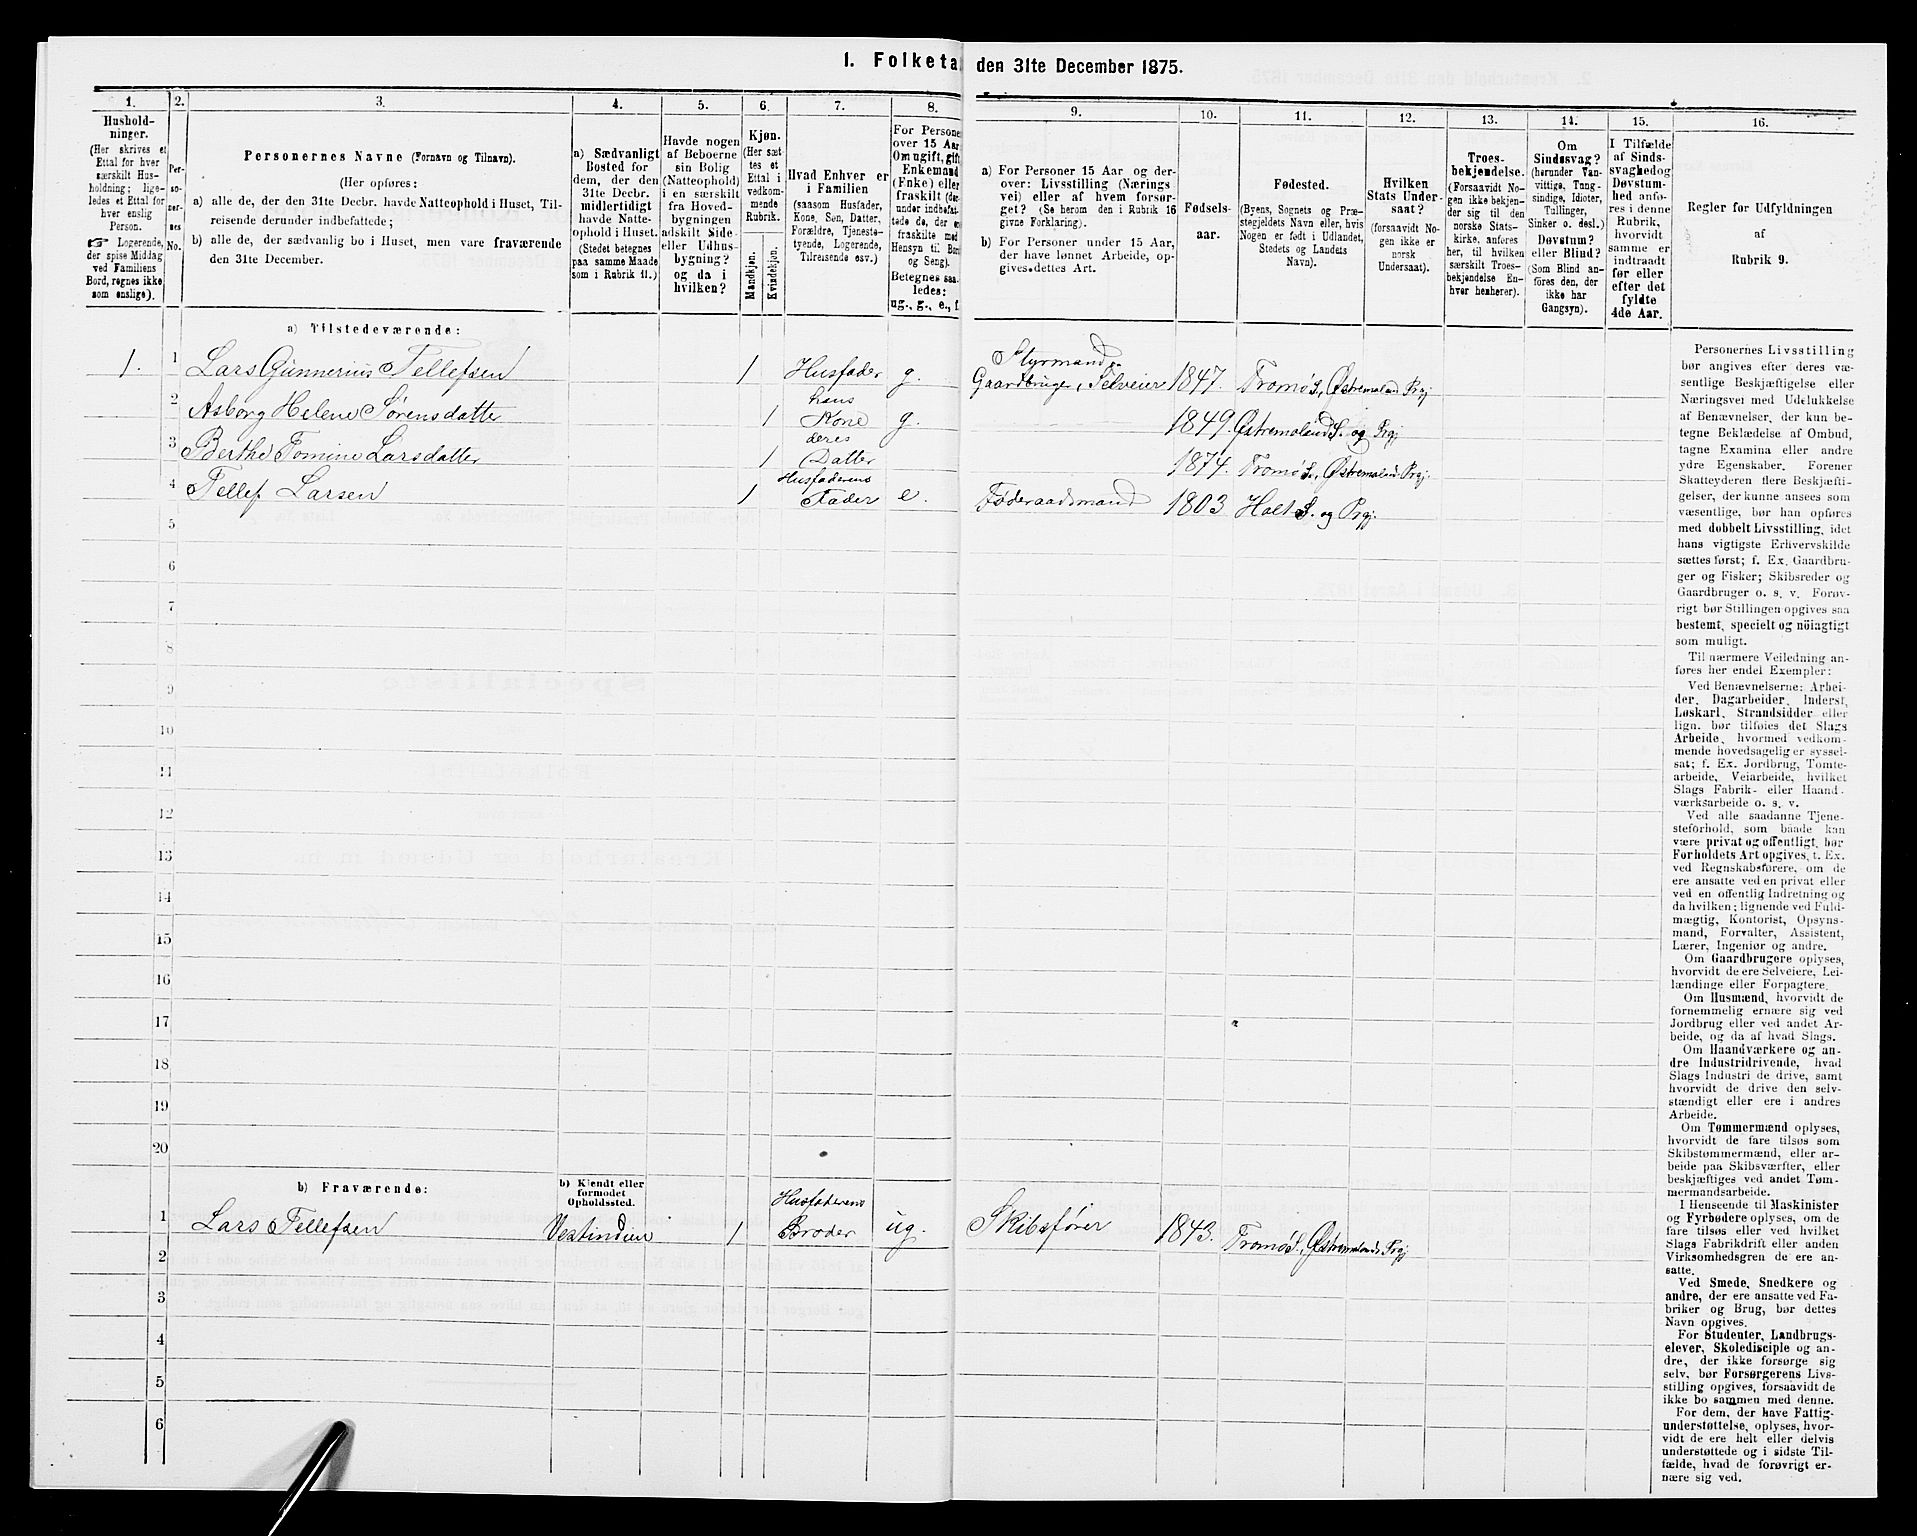 1. Folketa den 31te December 1875.
1. 2. 3. 4. 5. 6. 7. 8. 9. 10. 11. 12. 13. 14. 15. 16.
Hushold-
ninger.
(Her skrives et
Ettal for hver
særskilt Hus-
holdning; lige-
ledes et Ettal for
hver enslig
Person.
☞ Logerende,
der spise Middag
ved Familiens
Bord, regnes ikke
som enslige).
Per-
so-
ner-
nes
No.
Personernes Navne (Fornavn og Tilnavn).
(Her opføres:
a) alle de, der den 31te Decbr. havde Natteophold i Huset, Til-
reisende derunder indbefattede;
b) alle de, der sædvanlig bo i Huset, men vare fraværende
den 31te December.
a) Sædvanligt
Bosted for
dem, der den
31te Decbr.
midlertidigt
havde Natte-
ophold i Huset.
(Stedet betegnes
paa samme Maade
som i Rubrik 11.)
Havde nogen
af Beboerne
sin Bolig
(Natteophold)
i en særskilt
fra Hoved-
bygningen
adskilt Side-
eller Udhus-
bygning?
og da i
hvilken?
Kjøn.
(Her sæt-
tes et
Ettal i
vedkom-
mende
Rubrik.
Mandkjøn.
Kvindekjøn.
Hvad Enhver er
i Familien
(saasom Husfader,
Kone, Søn, Datter,
Forældre, Tjeneste-
tyende, Logerende,
Tilreisende osv.)
For Persone
over 15 Aar
Om ugift, gift
Enkemand
(Enke) eller
fraskilt (der-
under indbefat-
tede de, der er
fraskilte med
Hensyn til Bord
og Seng).
Betegnes saa-
ledes:
ug., g., e., f.
a) For Personer 15 Aar og der-
over: Livsstilling (Nærings-
vei) eller af hvem forsør-
get? (Se herom den i Rubrik 16
givne Forklaring).
b) For Personer under 15 Aar,
der have lønnet Arbeide, op-
gives dettes Art.
Fødsels-
aar.
Fødested.
(Byens, Sognets og Præ-
stegjeldets Navn eller, hvis
Nogen er født i Udlandet,
Stedets og Landets
Navn).
Hvilken
Stats Under-
saat?
(forsaavidt No-
gen ikke er
norsk
Undersaat).
Troes-
bekjendelse.
(Forsaavidt No-
gen ikke bekjen-
der sig til den
norske Stats-
kirke, anføres
her, til hvilken
særskilt Troes-
bekjendelse En-
hver henhører).
Om
Sindssvag?
(herunder Van-
vittige, Tung-
sindige, Idioter,
Tullinger,
Sinker o. desl.)
Døvstum?
eller Blind?
(Som Blind an-
føres den, der
ikke har
Gangsyn).
I Tilfælde
af Sinds-
svaghed og
Døvstum-
hed anfø-
res i denne
Rubrik,
hvorvidt
samme er
indtraadt
før eller
efter det
fyldte
4de Aar.
Regler for Udfyldningen
af
Rubrik 9.
a) Tilstedeværende:
1. 1 Lars Gunnerius Tellefsen 1 Husfader g. Styrmand, Gaardbruger, Selveier 1847. Tromø S., Østremoland Prgj
2 Asborg Helene Sørensdatter 1 hans Kone g. 1849. Østremoland S. og Prgj
3 Berthe Tomine Larsdatter 1 deres Datter 1874. Tromø S., Østremoland Prgj.
4 Tellef Larsen 1 Husfaderens Fader e. Føderaadsmand 1803 Holt S. og Prgj.
5
6
7
8
9
10
11
12
13
14
15
16
17
18
19
20
b) Fraværende:
b) Kjendt eller
formodet
Opholdssted.
1 Lars Tellefsen Vestindien 1 Husfaderens Broder ug. Skibsfører 1843. Tromø S., Østremoland Prgj
2
3
4
5
6
Personernes Livsstilling
bør angives efter deres væ-
sentlige Beskjæftigelse eller
Næringsvei med Udelukkelse
af Benævnelser, der kun be-
tegne Beklædelse af Ombud,
tagne Examina eller andre
ydre Egenskaber. Forener
Skatteyderen flere Beskjæfti-
gelser, der kunne ansees som
væsentlige, bør han opføres
med dobbelt Livsstilling, idet
hans vigtigste Erhvervskilde
sættes først; f. Ex. Gaardbru-
ger og Fisker; Skibsreder og
Gaardbruger o. s. v. Forøv-
rigt bør Stillingen opgives saa
bestemt, specielt og nöiagtigt
som muligt.
Til nærmere Veiledning an-
føres her endel Exempler:
Ved Benævnelserne: Arbei-
der, Dagarbeider, Inderst,
Løskarl, Strandsidder eller
lign. bør tilføies det Slags
Arbeide, hvormed vedkom-
mende hovedsagelig er syssel-
sat; f. Ex. Jordbrug, Tomte-
arbeide, Veiarbeide, hvilket
Slags Fabrik- eller Haand-
værksarbeide o. s. v.
Ved alle saadanne Tjene-
steforhold, som baade kan
være privat og offentligt, bør
Forholdets Art opgives, t. Ex.
ved Regnskabsførere, om de
ere ansatte ved en privat eller
ved en offentlig Indretning og
da hvilken; lignende ved Fuld-
mægtig, Kontorist, Opsyns-
mand, Forvalter, Assistent,
Lærer, Ingeniør og andre.
Om Gaardbrugere oplyses,
hvorvidt de ere Selveiere, Lei-
lændinge eller Forpagtere.
Om Husmænd, hvorvidt de
fornemmelig ernære sig ved
Jordbrug eller ved andet Ar-
beide, og da af hvad Slags.
Om Haandværkere og an-
dre Industridrivende, hvad
Slags Industri de drive, samt
hvorvidt de drive den selv-
stændigt eller ere i andres
Arbeide.
Om Tømmermænd oplyses,
hvorvidt de fare tilsøs som
Skibstømmermænd, eller ar-
beide paa Skibsværfter, eller
beskjæftiges ved andet Tøm-
mermandsarbeide.
I Henseende til Maskinister
og Fyrbødere oplyses, om de
fare tilsøs eller ved hvilket
Slags Fabrikdrift eller anden
Virksomhedsgren de ere an-
satte.
Ved Smede, Snedkere og
andre, der ere ansatte ved Fa-
briker og Brug, bør dettes
Navn opgives.
For Studenter, Landbrugs-
elever, Skoledisciple og an-
dre, der ikke forsørge sig
selv, bør Forsørgerens Livs-
stilling opgives, forsaavidt de
ikke bo sammen med denne.
For dem, der have Fattig-
understøttelse, oplyses, hvor-
vidt de ere helt eller delvis
understøttede og i sidste Til-
fælde, hvad de forøvrigt er-
nære sig ved.